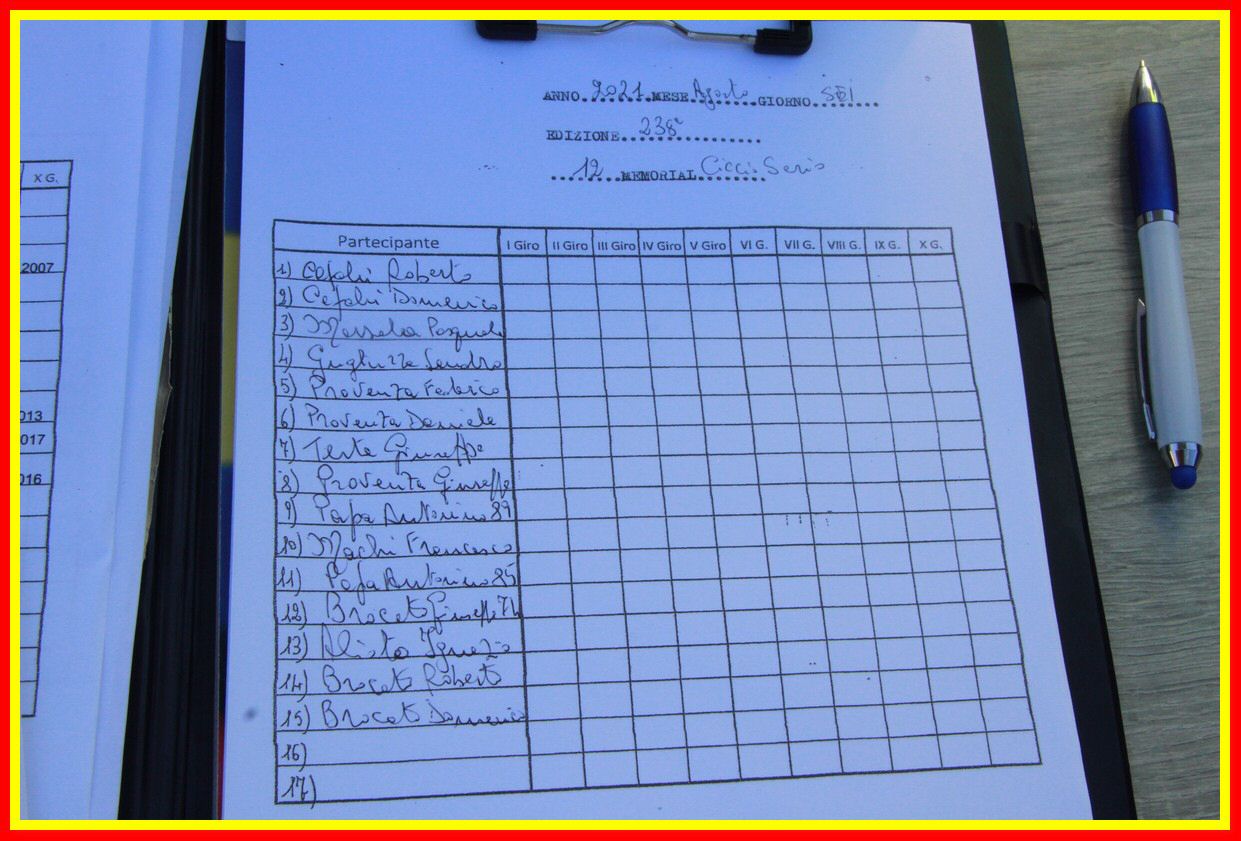 X G.
2007
013
017
016
ANNO 2021 MESE Agosto GIORNO SEI
EDIZIONE 238°
12 MEMORIAL
Partecipante I Giro II Giro III Giro IV Giro V Giro VI G. VII G. VIII G. IX G. X G.
1) Cefalù Roberto
2) Cefalù Domenico
3) Pasquale
4) Gugliuzza Sandro
5) Proventa Federico
6) Proventa Daniele
7) Testa Giuseppe
8) Proventa Giuseppe
9) Papa Antonino 89
10) Machì Francesco
11) Papa Antonino 85
12) Brocato Giuseppe 74
13) Alioto Ignazio
14) Brocato Roberto
15) Brocato Domenico
16)
17)